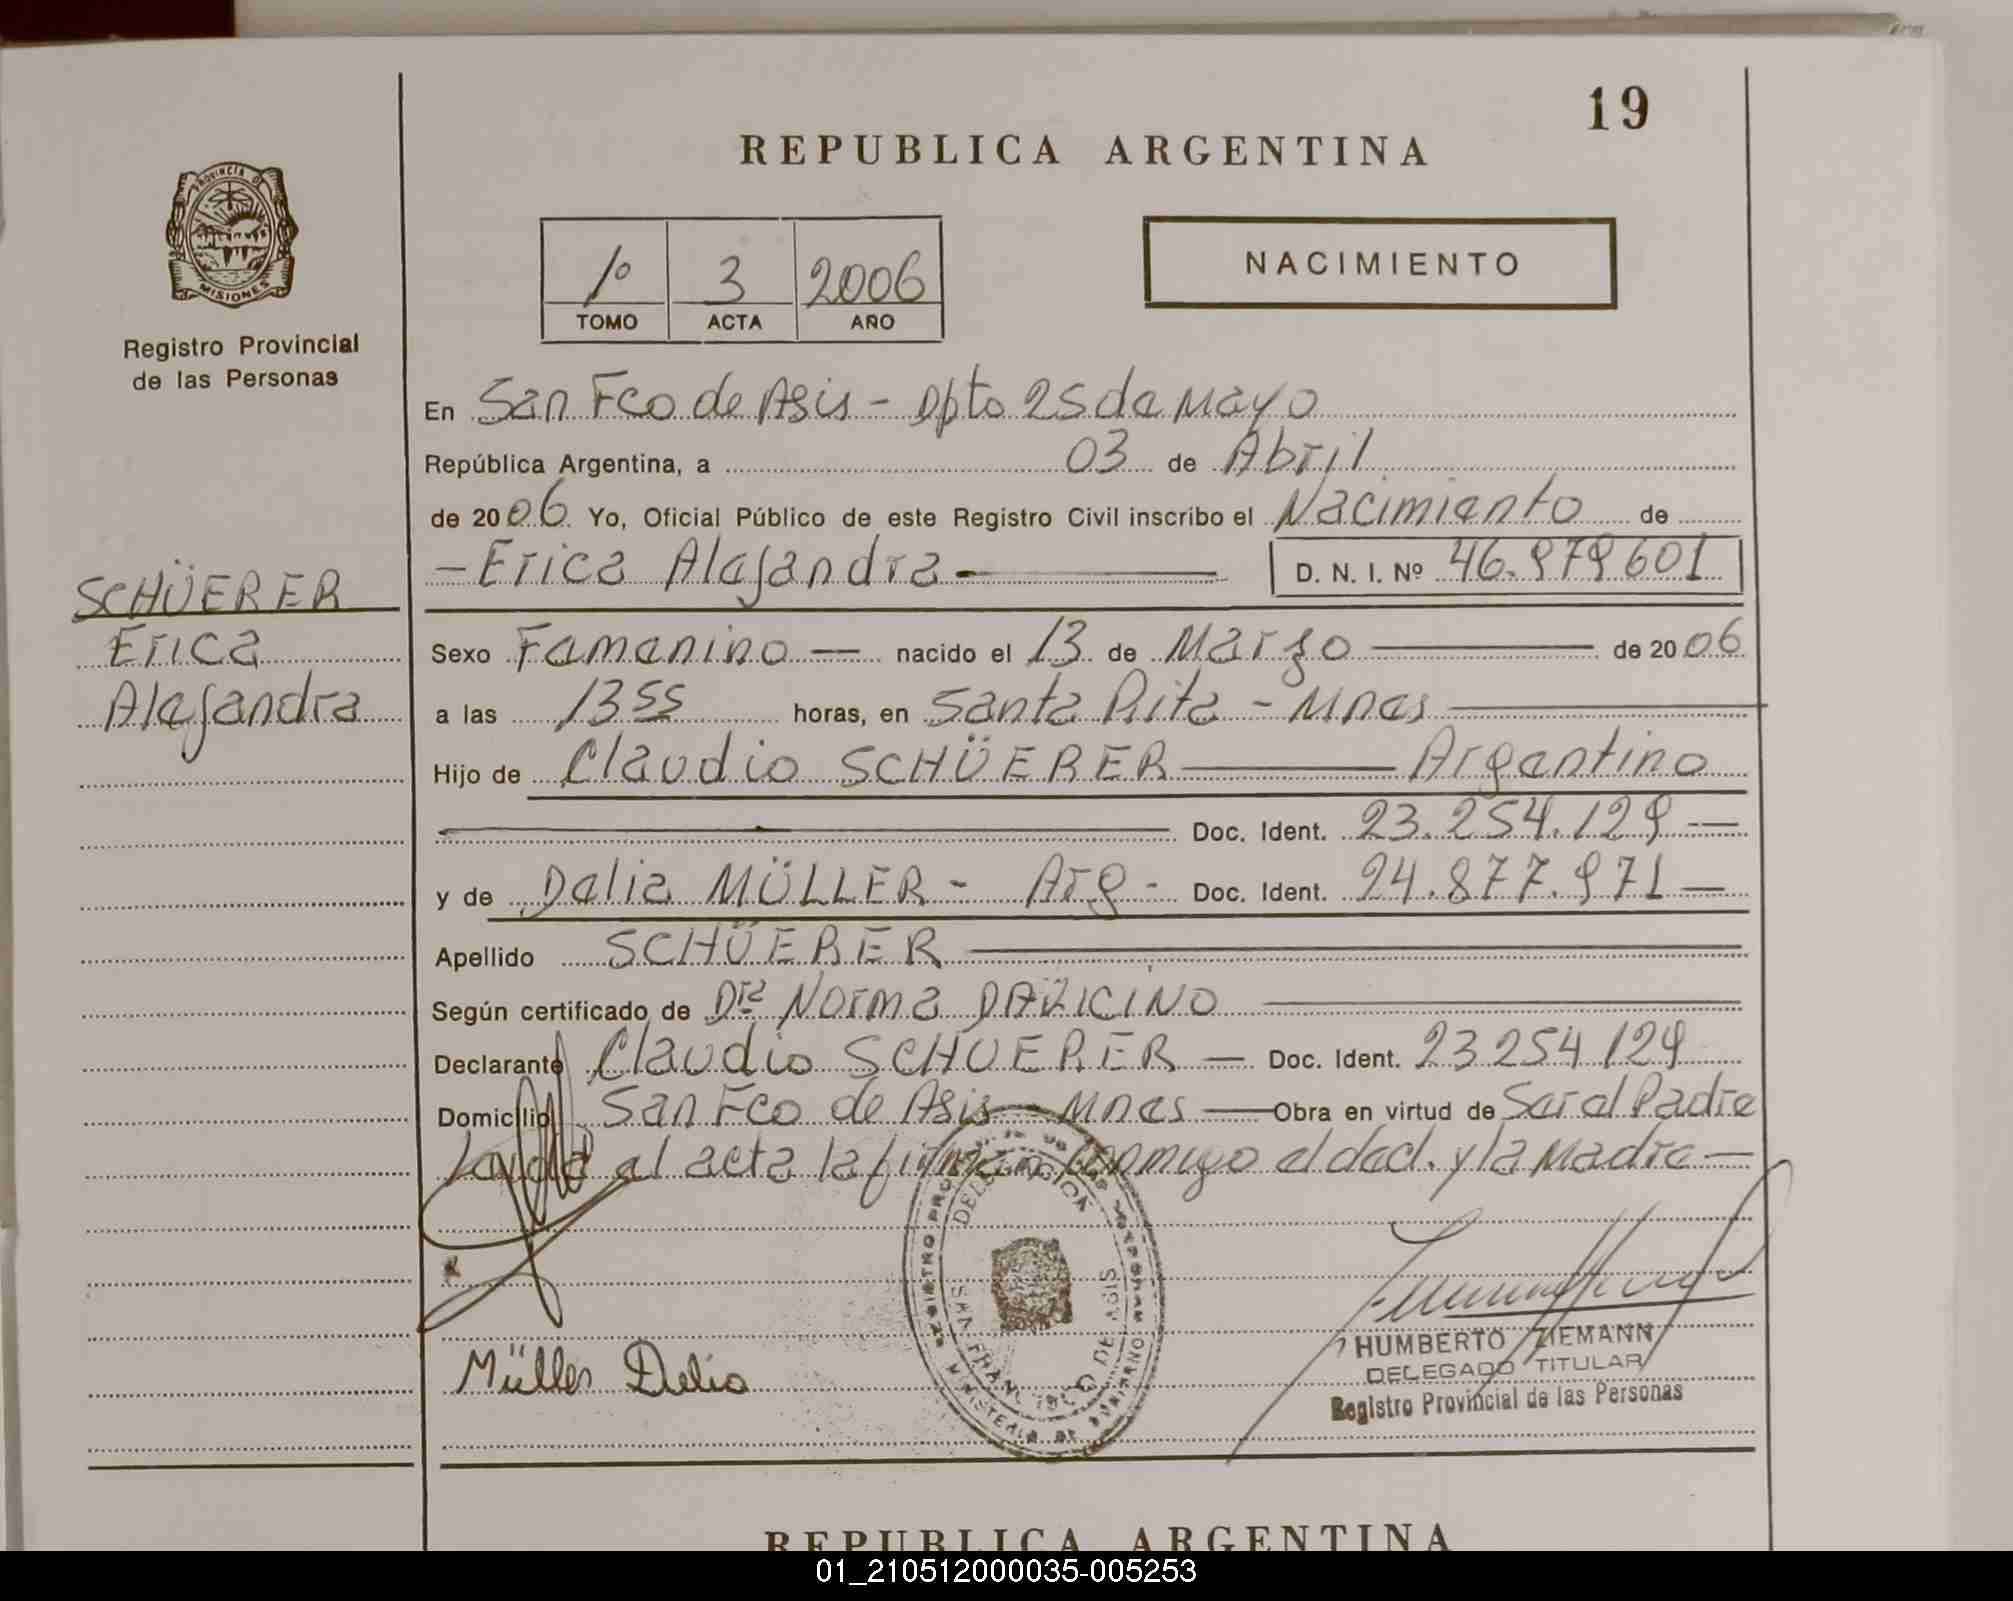 19
REPUBLICA ARGENTINA
PROVINCIA DE
MISIONES
Registro Provincial
de las Personas
1º 3 2006
TOMO ACTA AÑO
NACIMIENTO
En San Fco de Asis - Dpto 25 de Mayo
República Argentina, a 03 de Abril
de 2006 Yo, Oficial Público de este Registro Civil inscribo el Nacimiento de
- Erica Alejandra - D. N. I. Nº 46.979601
SCHÜERER
Erica
Alejandra
Sexo Femenino — nacido el 13 de Marzo — de 2006
a las 13 55 horas, en Santa Rita - Mnes
Hijo de Claudio SCHÜERER — Argentino
Doc. Ident. 23.254.129 —
y de Delia MÜLLER - Arg - Doc. Ident. 24.877.971 —
Apellido SCHÜERER
Según certificado de Dra Norma
Declarante Claudio SCHUERER — Doc. Ident. 23254129
Domicilio San Fco de Asis Mnes — Obra en virtud de Ser el Padre
Leyda el acta la firman conmigo el decl. y la Madre —
Müller Delia
HUMBERTO ZIEMANN
DELEGADO TITULAR
Registro Provincial de las Personas
REPUBLICA ARGENTINA
01_210512000035-005253